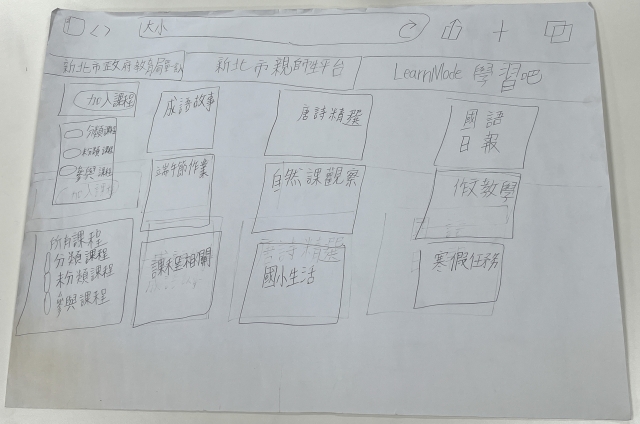 大小
新北市政府教育局
新北市親師生平台
LearnMode 學習吧
加入課程
分類課程
粉類課程
參與課程
成語故事
唐詩精選
國語
日報
端午節作業
自然課觀察
作文教學
所有課程
分類課程
未分類課程
參與課程
課程相關
國小生活
寒假任務